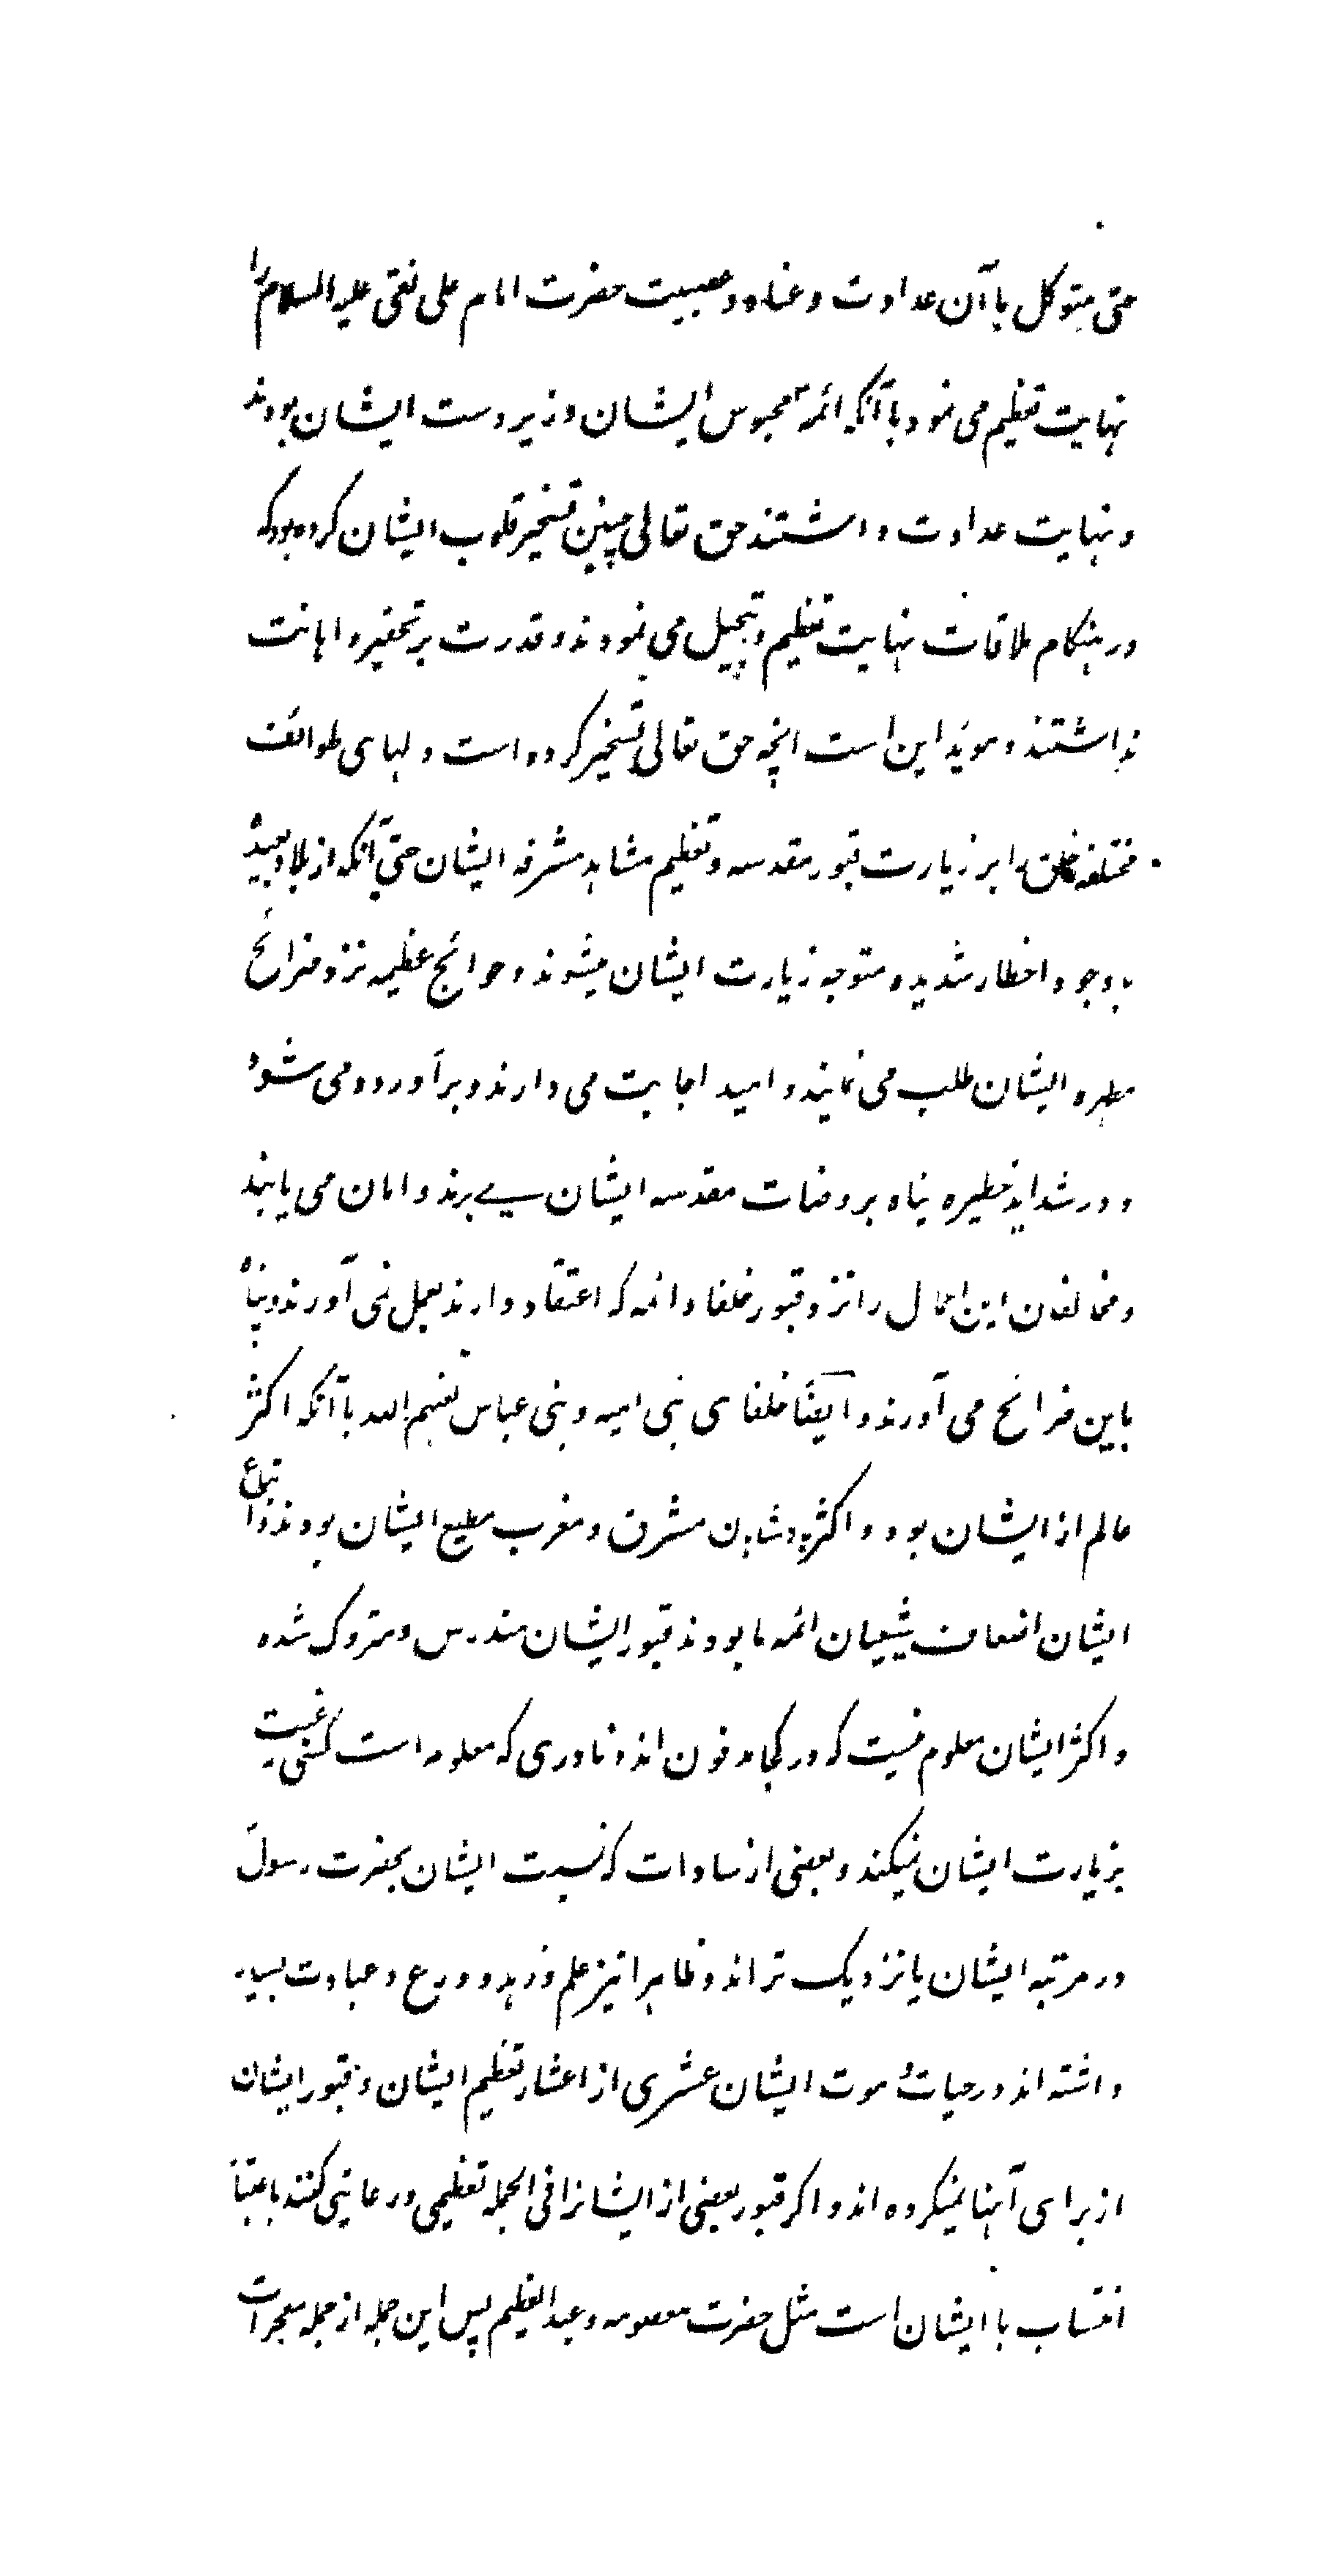 حتی متوکل با آن عداوت و عناد و عصبیت حضرت امام علی نقی علیه السلام را
نهایت تعظیم می نمود با آنکه ائمه محبوس ایشان و زیر دست ایشان بودند
و نهایت عداوت داشتند حق تعالی چنین تسخیر قلوب ایشان کرده بود که
در هنکام ملاقات نهایت تعظیم و تبجیل می نمودند و قدرت بر تحقیر و اهانت
نداشتند و موید این است انچه حق تعالی تسخیر کرده است دلهای طوائف
مختلفه خلق را بر زیارت قبور مقدسه و تعظیم مشاهد مشرفه ایشان حتی آنکه از بلاد بعیده
باوجود اخطار شدیده متوجه زیارت ایشان میشوند و حوائج عظیمه نزد ضرائح
مطهره ایشان طلب می نمایند و امید اجابت می دارند و برآورده می شود
و در شداید خطیره پناه بروضات مقدسه ایشان می برند و امان می یابند
و مخالفان این اعمال را نزد قبور خلفا و ائمه که اعتقاد دارند بعمل نمی آورند و پناه
باین ضرائح می آورند و ایضًا خلفای بنی امیه و بنی عباس لعنهم الله با آنکه اکثر
عالم از ایشان بود و اکثر پادشاهان مشرق و مغرب مطیع ایشان بودند و اتباع
ایشان اضعاف شیعیان ائمه ما بودند قبور ایشان مندرس و متروک شده
و اکثر ایشان معلوم نیست که در کجا مدفون اند و نادری که معلوم است کسی رغبت
بزیارت ایشان نمیکند و بعضی از سادات که نسبت ایشان بحضرت رسولؐ
در مرتبه ایشان یا نزدیک تر اند و ظاهرا نیز علم و زهد و ورع و عبادت بسیار
داشته اند در حیات و موت ایشان عشری از اعشار تعظیم ایشان و قبور ایشان
از برای آنها نمیکرده اند و اکر قبور بعضی از ایشانرا فی الجمله تعظیمی و رعایتی کنند باعتبار
انتساب با ایشان است مثل حضرت معصومه و عبد العظیم پس این جمله از جمله معجزات